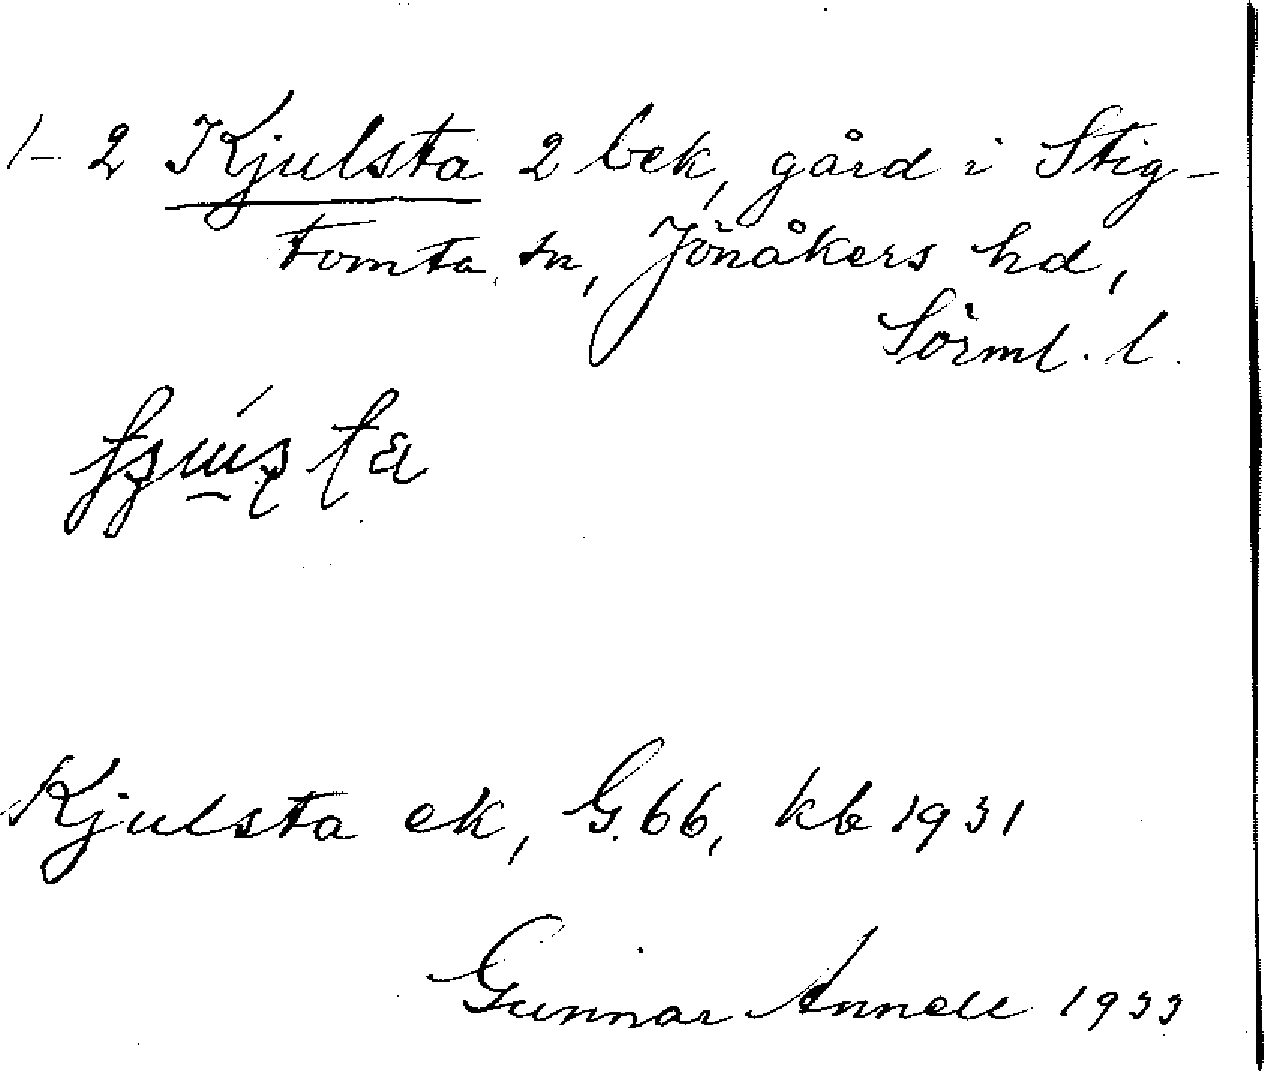 1-2 Kjulsta 2 bek, gård i Stig-
tomta sn, Jönåkers hd,
Sörml. l.
Kjulsta ek, G. 66, kb 1931
Gunnar Annell 1933